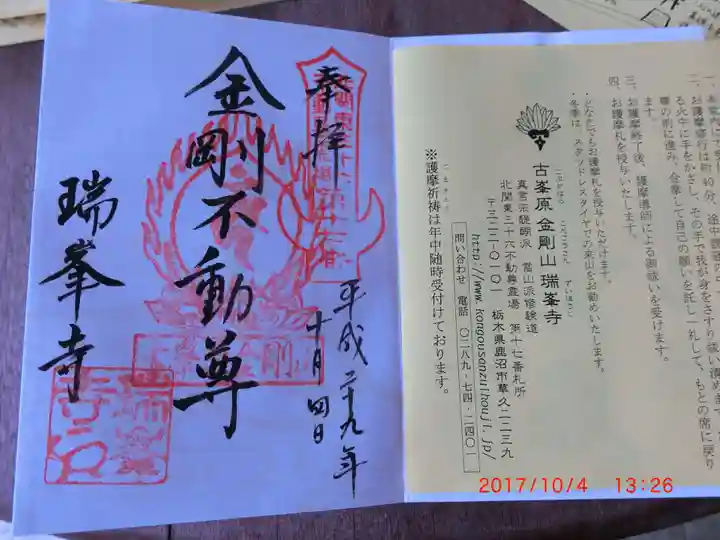 奉拝
金剛不動尊
瑞峯寺
平成二十九年
十月四日
二、お護摩修行は約40分、途中
る火中に手をかざし、その手で我が身をさすり祓い清め
壇の前に進み、合掌して自己の願いを託し一礼して、もとの席に戻り
ます。
三、お護摩終了後、護摩導師による御祓いを受けます。
四、お護摩札を授与いたします。
・どなたでもお護摩札を授与いただけます。
・冬季は、スタッドレスタイヤでの来山をお勧めいたします。
古峯原 金剛山 瑞峯寺
真言宗醍醐派 當山派修験道
北関東三十六不動尊霊場 第十七番札所
〒三二二-〇一〇一 栃木県鹿沼市草久二二三九
問い合わせ 電話 〇二八九-七四-二四〇一
http://www.kongousanzuihouji.jp/
※護摩祈祷は年中随時受付けております。
2017/10/4 13:26